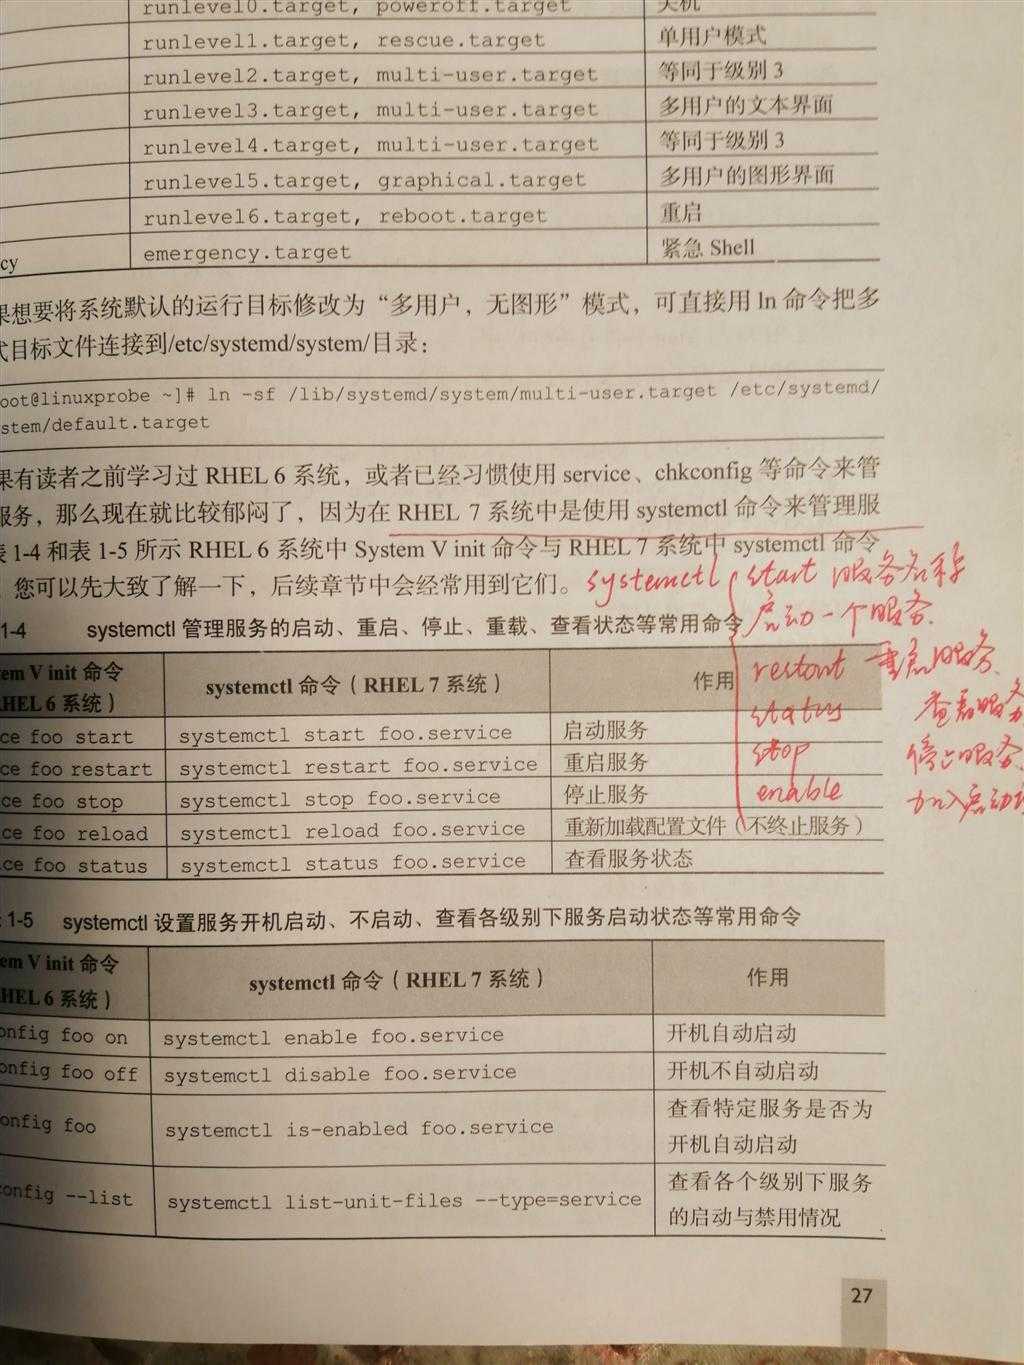 runlevel0.target, poweroff.target 关机
runlevel1.target, rescue.target 单用户模式
runlevel2.target, multi-user.target 等同于级别 3
runlevel3.target, multi-user.target 多用户的文本界面
runlevel4.target, multi-user.target 等同于级别 3
runlevel5.target, graphical.target 多用户的图形界面
runlevel6.target, reboot.target 重启
cy emergency.target 紧急 Shell
果想要将系统默认的运行目标修改为“多用户，无图形”模式，可直接用 ln 命令把多
式目标文件连接到/etc/systemd/system/目录：
oot@linuxprobe ~]# ln -sf /lib/systemd/system/multi-user.target /etc/systemd/
stem/default.target
果有读者之前学习过 RHEL 6 系统，或者已经习惯使用 service、chkconfig 等命令来管
服务，那么现在就比较郁闷了，因为在 RHEL 7 系统中是使用 systemctl 命令来管理服
表 1-4 和表 1-5 所示 RHEL 6 系统中 System V init 命令与 RHEL 7 系统中 systemctl 命令
您可以先大致了解一下，后续章节中会经常用到它们。 systemctl start 服务名称
启动一个服务.
1-4 systemctl 管理服务的启动、重启、停止、重载、查看状态等常用命令
em V init 命令
HEL 6 系统） systemctl 命令（RHEL 7 系统） 作用
restart 重启服务.
status 查看服务
stop 停止服务.
enable 加入启动
ce foo start systemctl start foo.service 启动服务
ce foo restart systemctl restart foo.service 重启服务
ce foo stop systemctl stop foo.service 停止服务
ce foo reload systemctl reload foo.service 重新加载配置文件（不终止服务）
ce foo status systemctl status foo.service 查看服务状态
1-5 systemctl 设置服务开机启动、不启动、查看各级别下服务启动状态等常用命令
em V init 命令
HEL 6 系统） systemctl 命令（RHEL 7 系统） 作用
onfig foo on systemctl enable foo.service 开机自动启动
onfig foo off systemctl disable foo.service 开机不自动启动
onfig foo systemctl is-enabled foo.service 查看特定服务是否为
开机自动启动
config --list systemctl list-unit-files --type=service 查看各个级别下服务
的启动与禁用情况
27